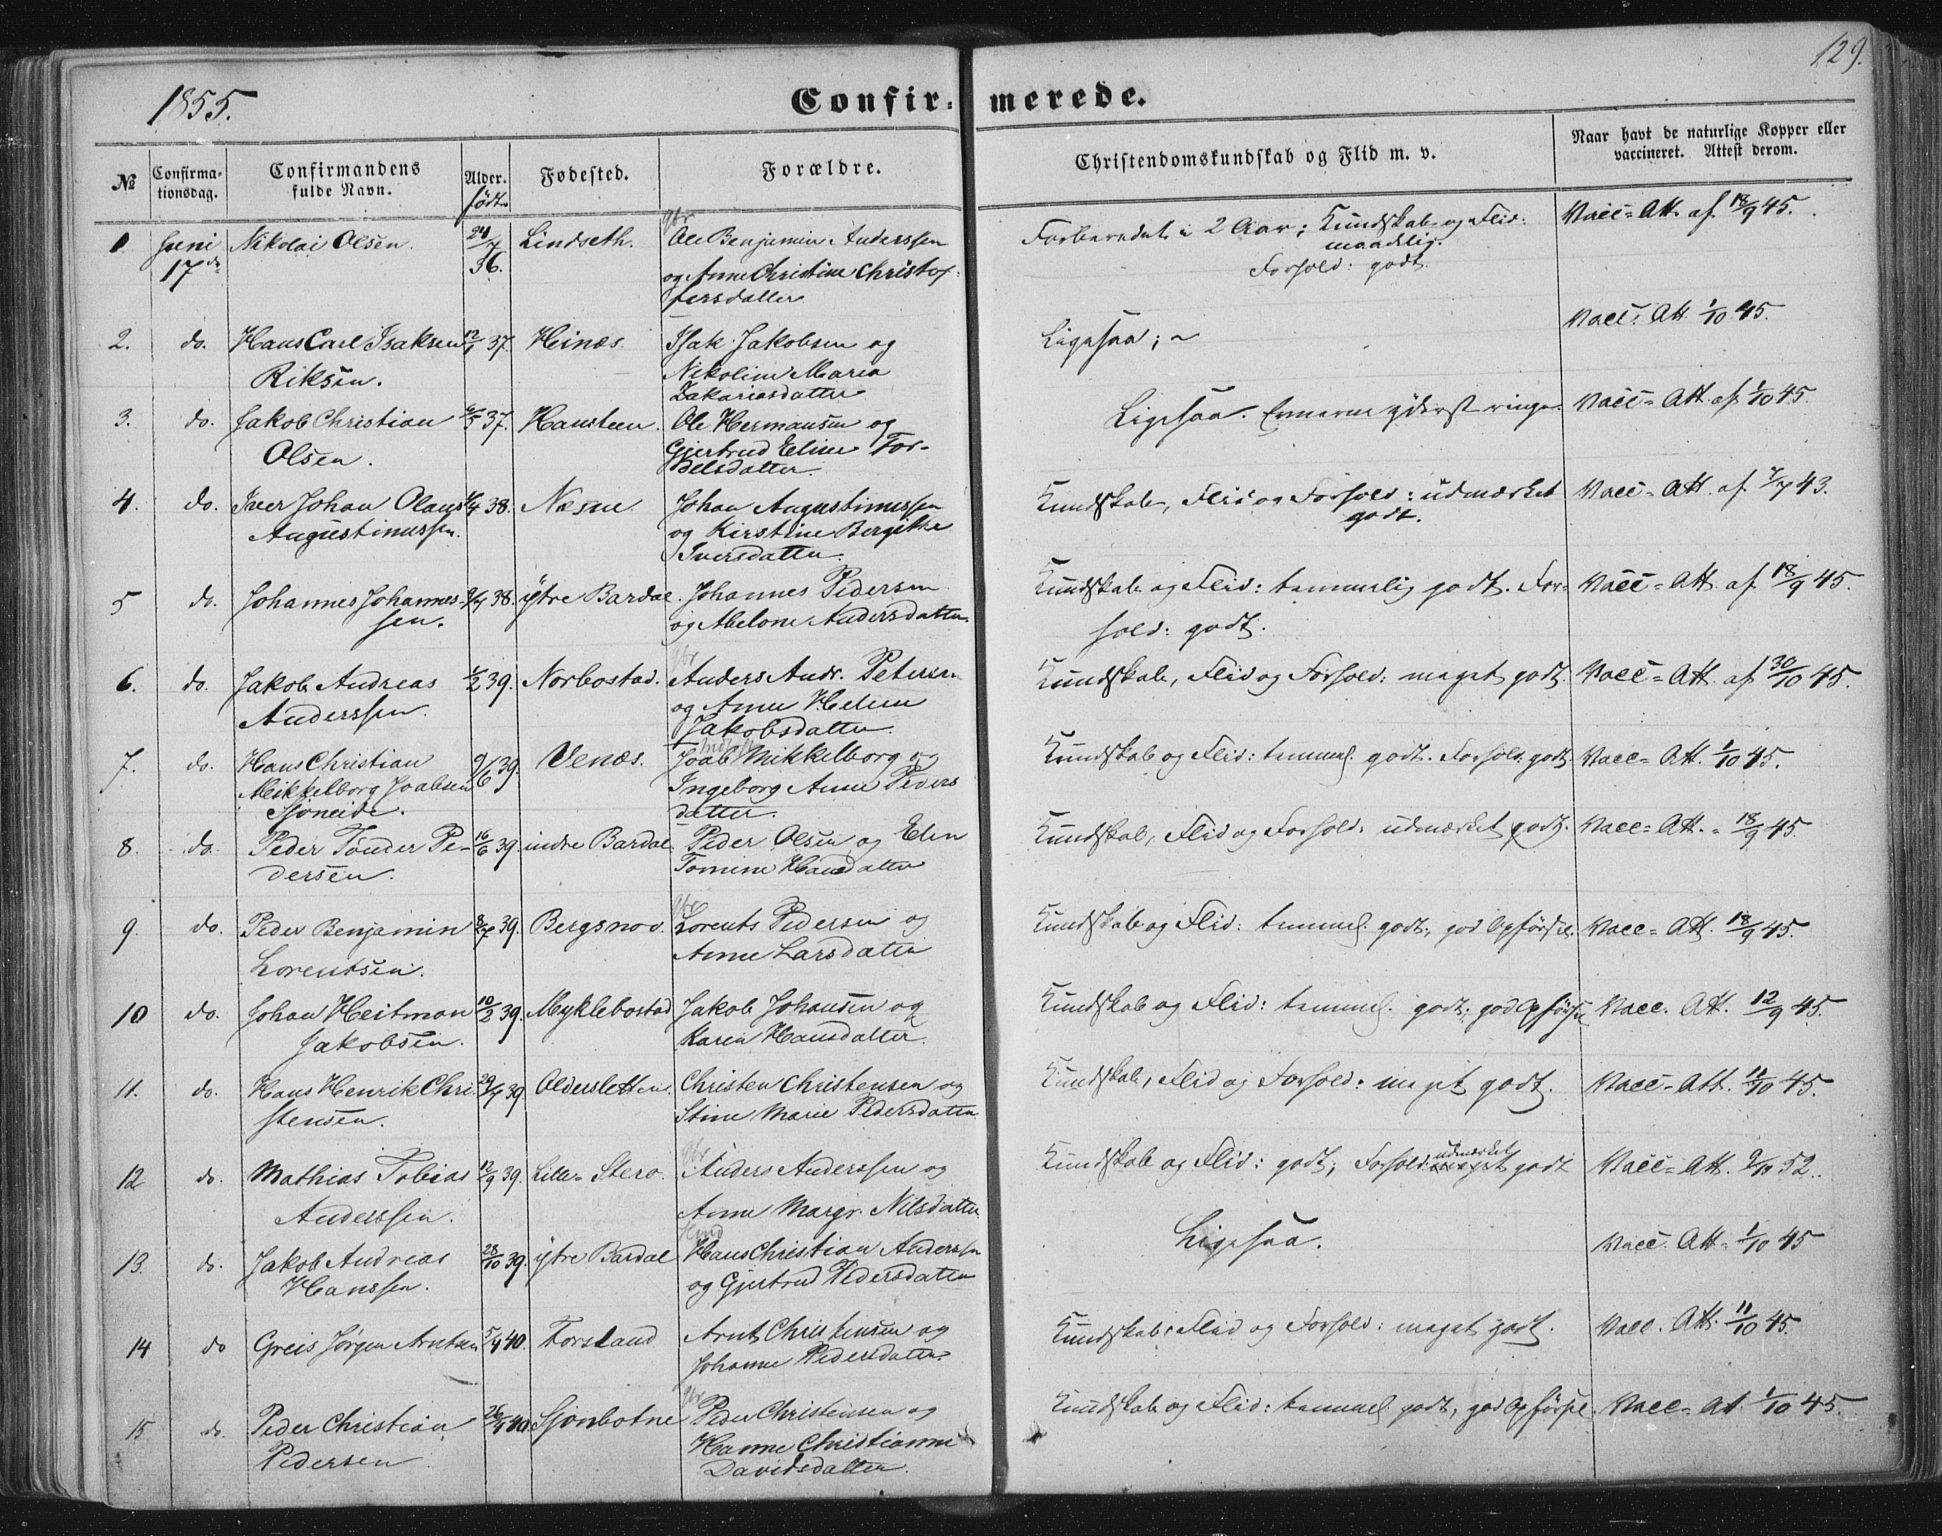 129.
1855.
Confir- merede.
№
Confirma-
tionsdag.
Confirmandens
fulde Navn.
Alder.
født
Fødested.
Forældre.
Christendomskundskab og Flid m. v.
Naar havt de naturlige Kopper eller
vaccineret. Attest derom.
1 Juni Nikolai Olsen. 24/7 Lindseth. Ole Benjamin Anderssen Forberedet i 2 Aar; Kundskab og Flid: Vacc=Att. af 18/9 45.
17de 36. og Anne Christine Christof- maadelig.
fersdatter Forhold: godt
2. do. Hans Carl Isaksen 12/1 37. Heinæs. Isak Jakobsen og Ligesaa; ~ Vacc. Att. 1/10 45.
Riksen. Nikoline Maria
Zakariasdatter
3. do. Jakob Christian 37. Hansteen. Ole Hermansen og Ligesaa. Evnerne yderst ringe. Vacc=Att. af 1/10 45.
Olsen. Gjertrud Eline Tor-
belsdatter.
4. do. Iver Johan Olaus 38. Næsne. Johan Augustinussen Kundskab, Flid og Forhold: udmærket Vacc=Att. af 43.
Augustinussen. og Kirstine Bergitte godt.
Iversdatter.
5 do. Johannes Johannes- 38. ytre Bardal. Johannes Pedersen Kundskab og Flid: temmelig godt. For- Vacc=Att. af 18/9 45.
sen. og Abelone Andersdatter hold: godt.
6. do. Jakob Andreas 1/2 39. Norbostad. Anders Andr. Petersen Kundskab, Flid og Forhold: meget godt. Vacc=Att. af 30/10 45.
Anderssen. og Anne Helene
Jakobsdatter.
7. do. Hans Christian 9/6 39. Venæs. Joab Mikkelborg og Kundskab og Flid: temmel. godt. Forhold: godt Vacc=Att. 1/10 45.
Mikkelborg Joabsen Ingeborg Anne Peders
Sjoneide. datter.
8. do. Peder Tønder Pe- 16/6 39. indre Bardal. Peder Olsen og Elen Kundskab, Flid og Forhold: udmærket godt. Vacc=Att. 18/9 45
dersen. Tomine Hansdatter
9. do. Peder Benjamin 8/7 39. Bergsnov. Lorents Pedersen og Kundskab og Flid: temmel. godt; god Opførsel. Vacc=Att. 18/9 45.
Lorentsen. Anne Larsdatter
10 do. Johan Heitman 10/2 39. Myklebostad Jakob Johansen og Kundskab og Flid: temmel. godt; god Opførsel Vacc. Att. 12/9 45.
Jakobsen. Karen Hansdatter.
11. do. Hans Henrik Chri 39 Oldersletten. Christen Christensen og Kundskab, Flid og Forhold: meget godt. Vacc=Att. 11/10 45.
stensen. Stine Marie Pedersdatter
12 do. Mathias Tobias 12/9 39. Lille=Stero. Anders Anderssen og Kundskab og Flid: godt; Forhold: udmærket godt Vacc=Att. 9/10 52.
Anderssen. Anne Margr. Nilsdatter.
13. do. Jakob Andreas 28/10 39. ytre Bardal Hans Christian Anderssen Ligesaa. Vacc. Att= 1/10 45
Hanssen. og Gjertrud Pedersdatter
14 do Greis Jørgen Arntsen 40. Forsland Arnt Christensen og Kundskab, Flid og Forhold: meget godt. Vacc. Att. 11/10 45.
Johanne Pedersdatter
15 do. Peder Christian 40. Sjonbotne Peder Christensen og Kundskab og Flid: temmel. godt, god Opførsel. Vacc=At 1/10 45.
Pedersen. Hanne Christianne
Davidsdatter.